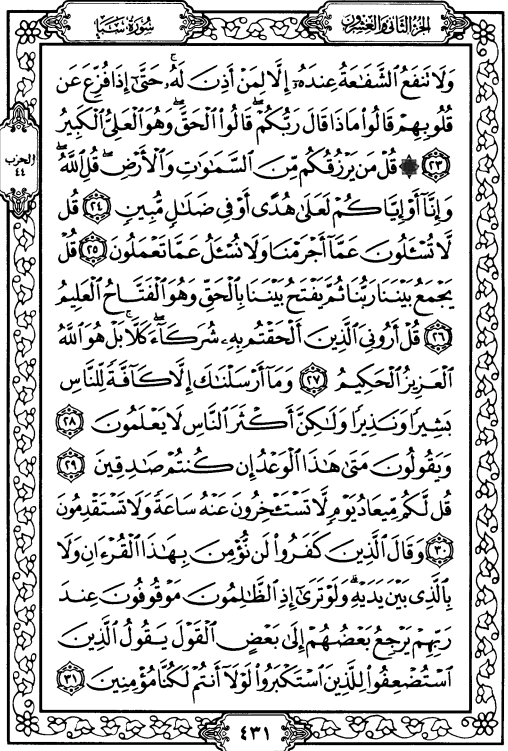 الجزء الثاني والعشرون
سورة سبأ
وَلَا تَنفَعُ ٱلشَّفَٰعَةُ عِندَهُۥٓ إِلَّا لِمَنْ أَذِنَ لَهُۥ ۚ حَتَّىٰٓ إِذَا فُزِّعَ عَن
قُلُوبِهِمْ قَالُوا۟ مَاذَا قَالَ رَبُّكُمْ ۖ قَالُوا۟ ٱلْحَقَّ ۖ وَهُوَ ٱلْعَلِىُّ ٱلْكَبِيرُ
٢٣ ۞ قُلْ مَن يَرْزُقُكُم مِّنَ ٱلسَّمَٰوَٰتِ وَٱلْأَرْضِ ۖ قُلِ ٱللَّهُ ۖ
وَإِنَّآ أَوْ إِيَّاكُمْ لَعَلَىٰ هُدًى أَوْ فِى ضَلَٰلٍ مُّبِينٍ ٢٤ قُل
لَّا تُسْـَٔلُونَ عَمَّآ أَجْرَمْنَا وَلَا نُسْـَٔلُ عَمَّا تَعْمَلُونَ ٢٥ قُلْ
يَجْمَعُ بَيْنَنَا رَبُّنَا ثُمَّ يَفْتَحُ بَيْنَنَا بِٱلْحَقِّ وَهُوَ ٱلْفَتَّاحُ ٱلْعَلِيمُ
٢٦ قُلْ أَرُونِىَ ٱلَّذِينَ أَلْحَقْتُم بِهِۦ شُرَكَآءَ ۖ كَلَّا ۚ بَلْ هُوَ ٱللَّهُ
ٱلْعَزِيزُ ٱلْحَكِيمُ ٢٧ وَمَآ أَرْسَلْنَٰكَ إِلَّا كَآفَّةً لِّلنَّاسِ
بَشِيرًا وَنَذِيرًا وَلَٰكِنَّ أَكْثَرَ ٱلنَّاسِ لَا يَعْلَمُونَ ٢٨
وَيَقُولُونَ مَتَىٰ هَٰذَا ٱلْوَعْدُ إِن كُنتُمْ صَٰدِقِينَ ٢٩
قُل لَّكُم مِّيعَادُ يَوْمٍ لَّا تَسْتَـْٔخِرُونَ عَنْهُ سَاعَةً وَلَا تَسْتَقْدِمُونَ
٣٠ وَقَالَ ٱلَّذِينَ كَفَرُوا۟ لَن نُّؤْمِنَ بِهَٰذَا ٱلْقُرْءَانِ وَلَا
بِٱلَّذِى بَيْنَ يَدَيْهِ ۗ وَلَوْ تَرَىٰٓ إِذِ ٱلظَّٰلِمُونَ مَوْقُوفُونَ عِندَ
رَبِّهِمْ يَرْجِعُ بَعْضُهُمْ إِلَىٰ بَعْضٍ ٱلْقَوْلَ يَقُولُ ٱلَّذِينَ
ٱسْتُضْعِفُوا۟ لِلَّذِينَ ٱسْتَكْبَرُوا۟ لَوْلَآ أَنتُمْ لَكُنَّا مُؤْمِنِينَ ٣١
الحزب
٤٤
٤٣١